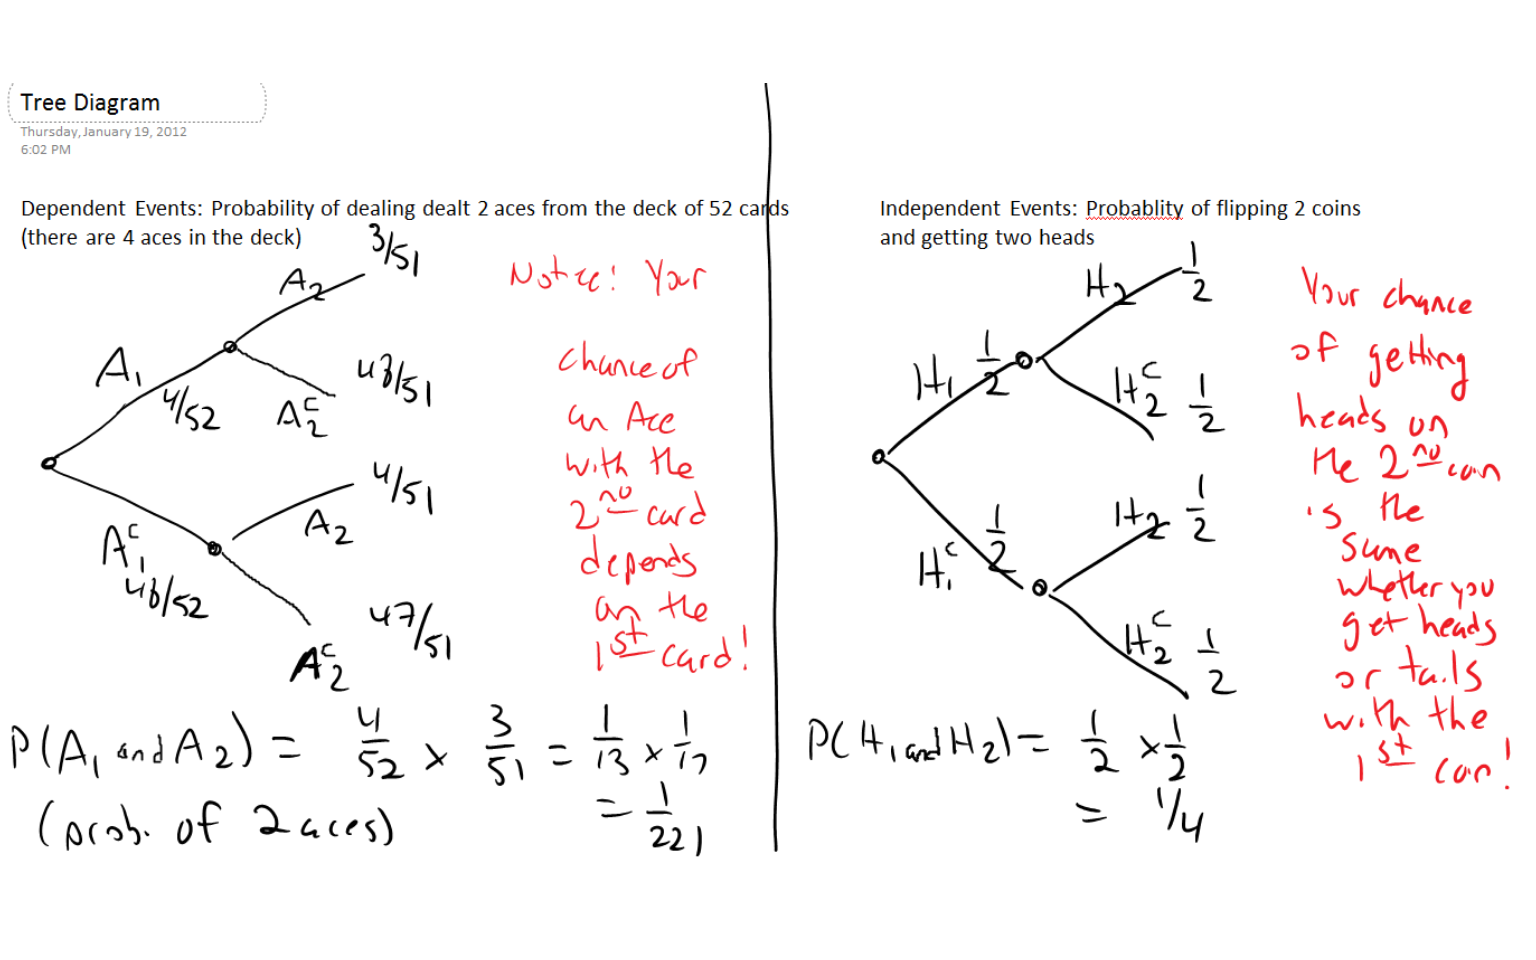 Tree Diagram
Thursday, January 19, 2012
6:02 PM
Dependent Events: Probability of dealing dealt 2 aces from the deck of 52 cards
(there are 4 aces in the deck)
3/51
A2
A1
4/52
43/51
A2^c
4/51
A2
A1^c
48/52
47/51
A2^c
Notice! Your
chance of
an Ace
with the
2nd card
depends
on the
1st card!
P(A1 and A2) = 4/52 × 3/51 = 1/13 × 1/17
= 1/221
(prob. of 2 aces)
Independent Events: Probablity of flipping 2 coins
and getting two heads
H2 1/2
H1 1/2
H2^c 1/2
H2 1/2
H1^c 1/2
H2^c 1/2
Your chance
of getting
heads on
the 2nd coin
is the
same
whether you
get heads
or tails
with the
1st coin!
P(H1 and H2) = 1/2 × 1/2
= 1/4